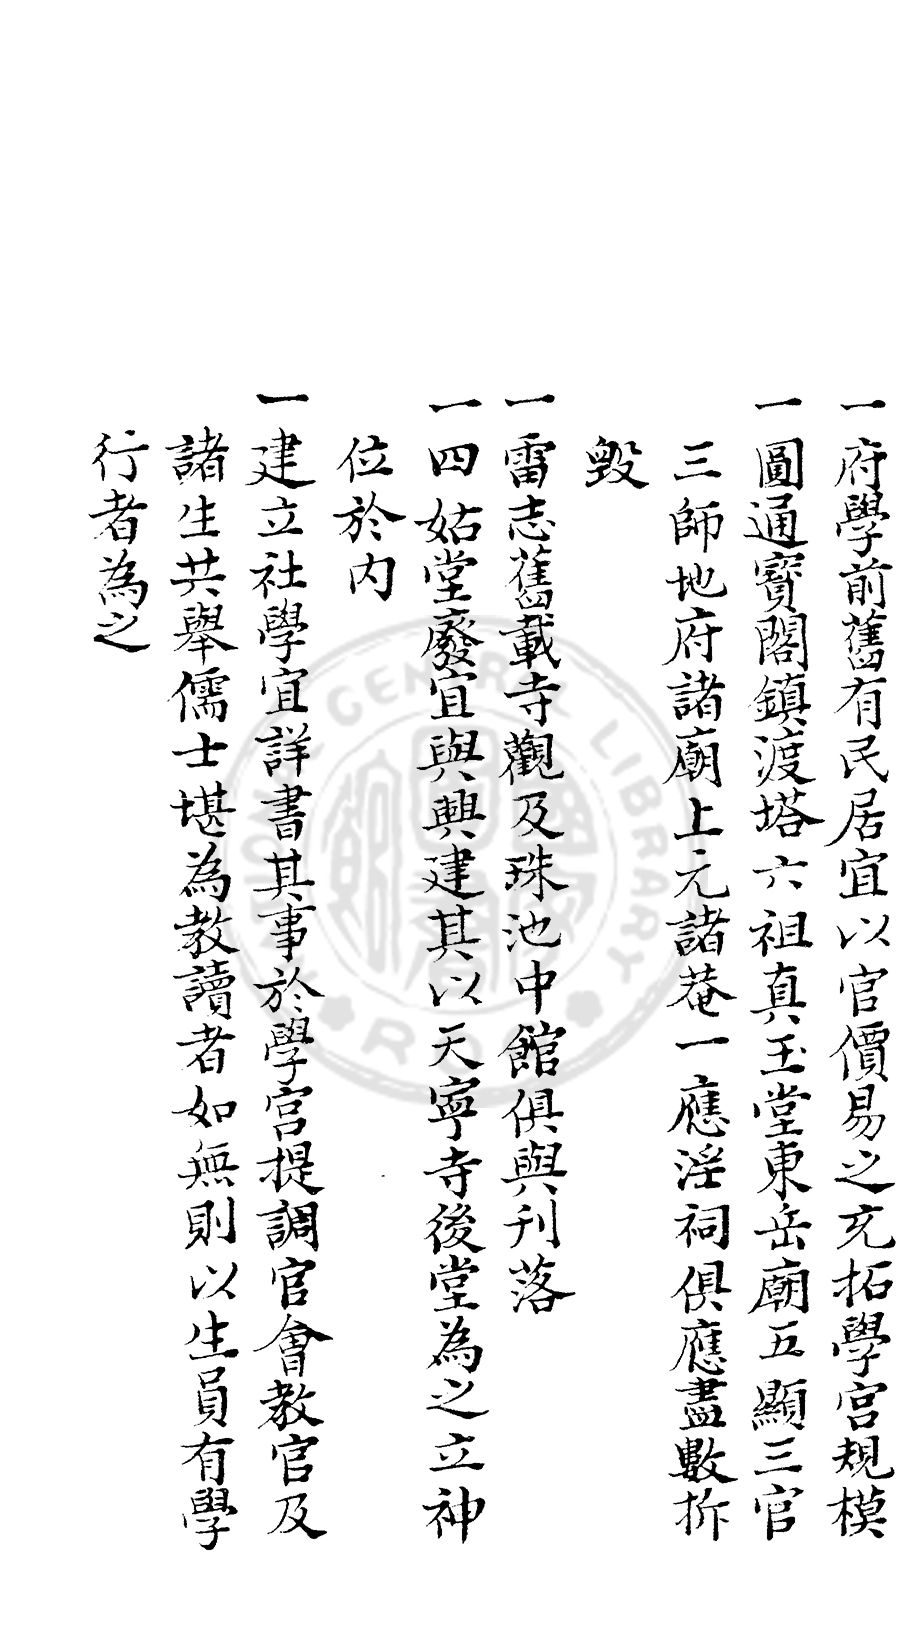 一府學前舊有民居宜以官價易之充拓學宮規模
一圓通寶閣鎮渡塔六祖真玉堂東岳廟五顯三官
三師地府諸廟上元諸菴一應淫祠俱應盡數拆
毀
一雷志舊載寺觀及珠池中館俱與刊落
一四姑堂廢宜與興建其以天寧寺後堂為之立神
位於內
一建立社學宜詳書其事於學宮提調官會教官及
諸生共舉儒士堪為教讀者如無則以生員有學
行者為之
GENERAL LIBRARY